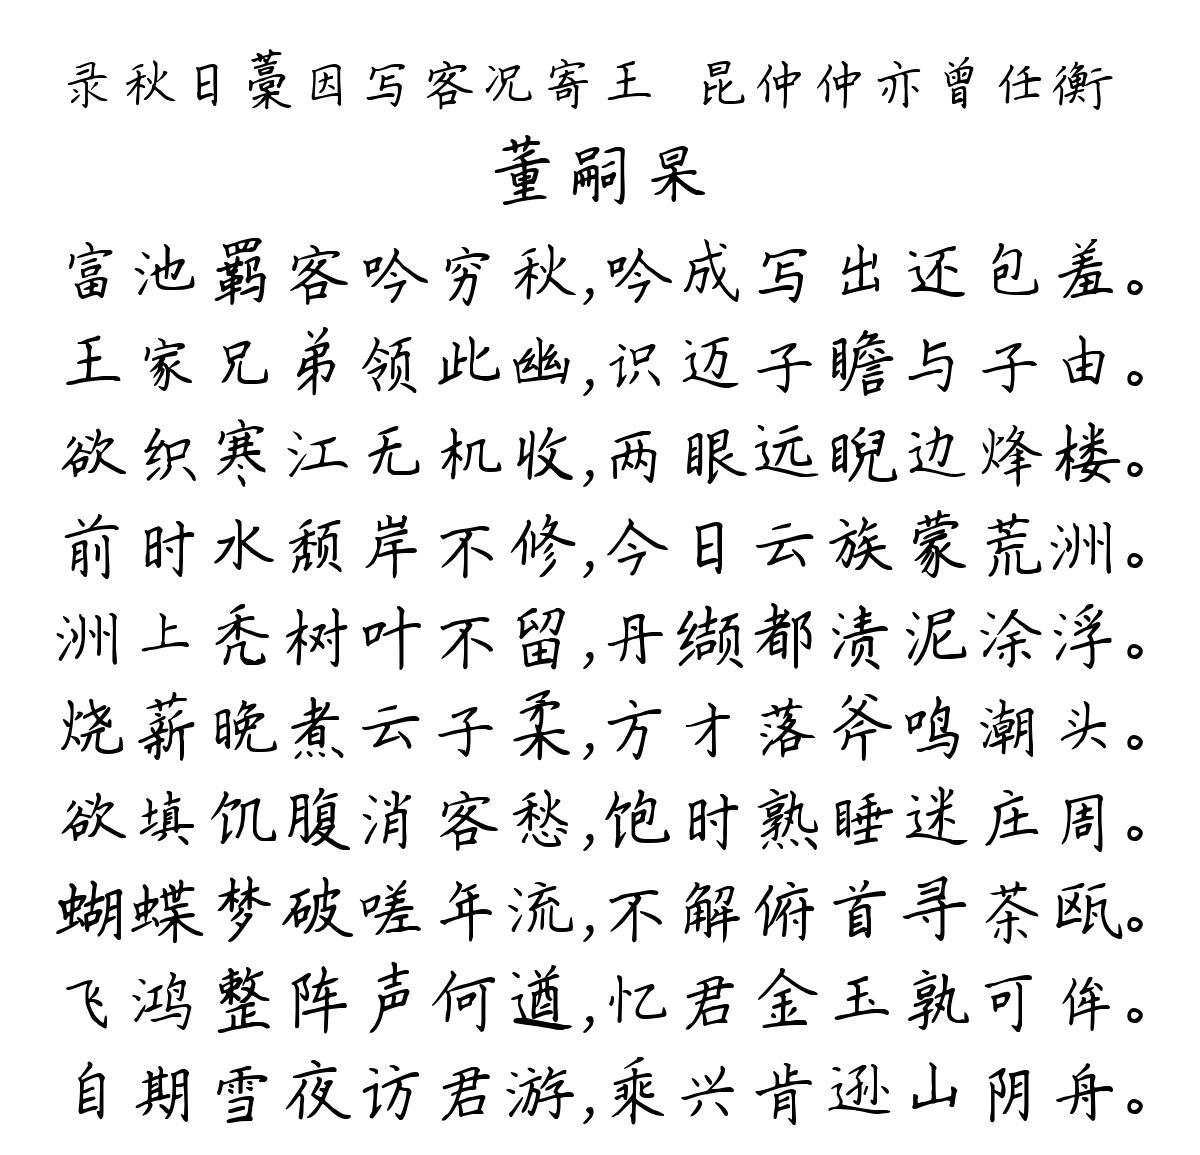 录秋日藁因写客况寄王 昆仲仲亦曾任衡
董嗣杲
富池羁客吟穷秋,吟成写出还包羞。
王家兄弟领此幽,识迈子瞻与子由。
欲织寒江无机收,两眼远睨边烽楼。
前时水颓岸不修,今日云族蒙荒洲。
洲上秃树叶不留,丹缬都渍泥涂浮。
烧薪晚煮云子柔,方才落斧鸣潮头。
欲填饥腹消客愁,饱时熟睡迷庄周。
蝴蝶梦破嗟年流,不解俯首寻茶瓯。
飞鸿整阵声何遒,忆君金玉孰可侔。
自期雪夜访君游,乘兴肯逊山阴舟。